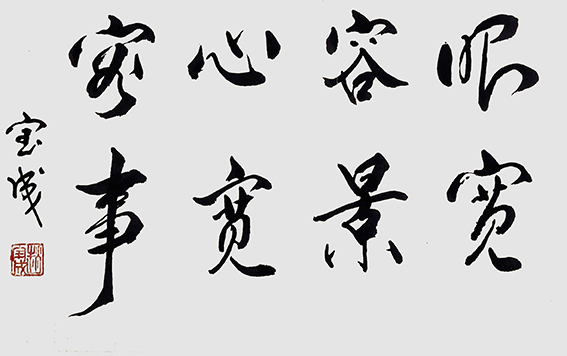 眼宽
容景
心宽
容事
宝